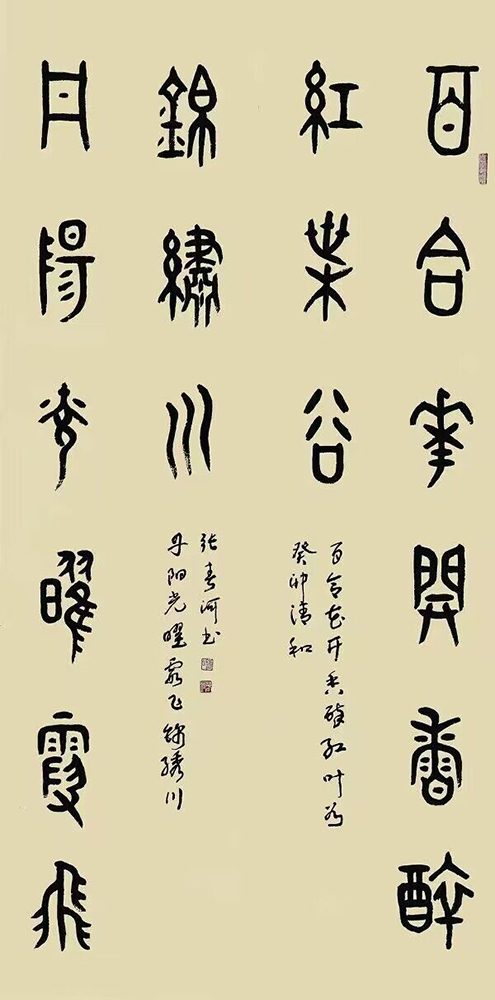 百合花開香醉
紅葉谷
百合花开香醉红叶谷
癸卯清和
丹陽光曜霞飛
錦繡川
丹阳光曜霞飞锦绣川
张春河书